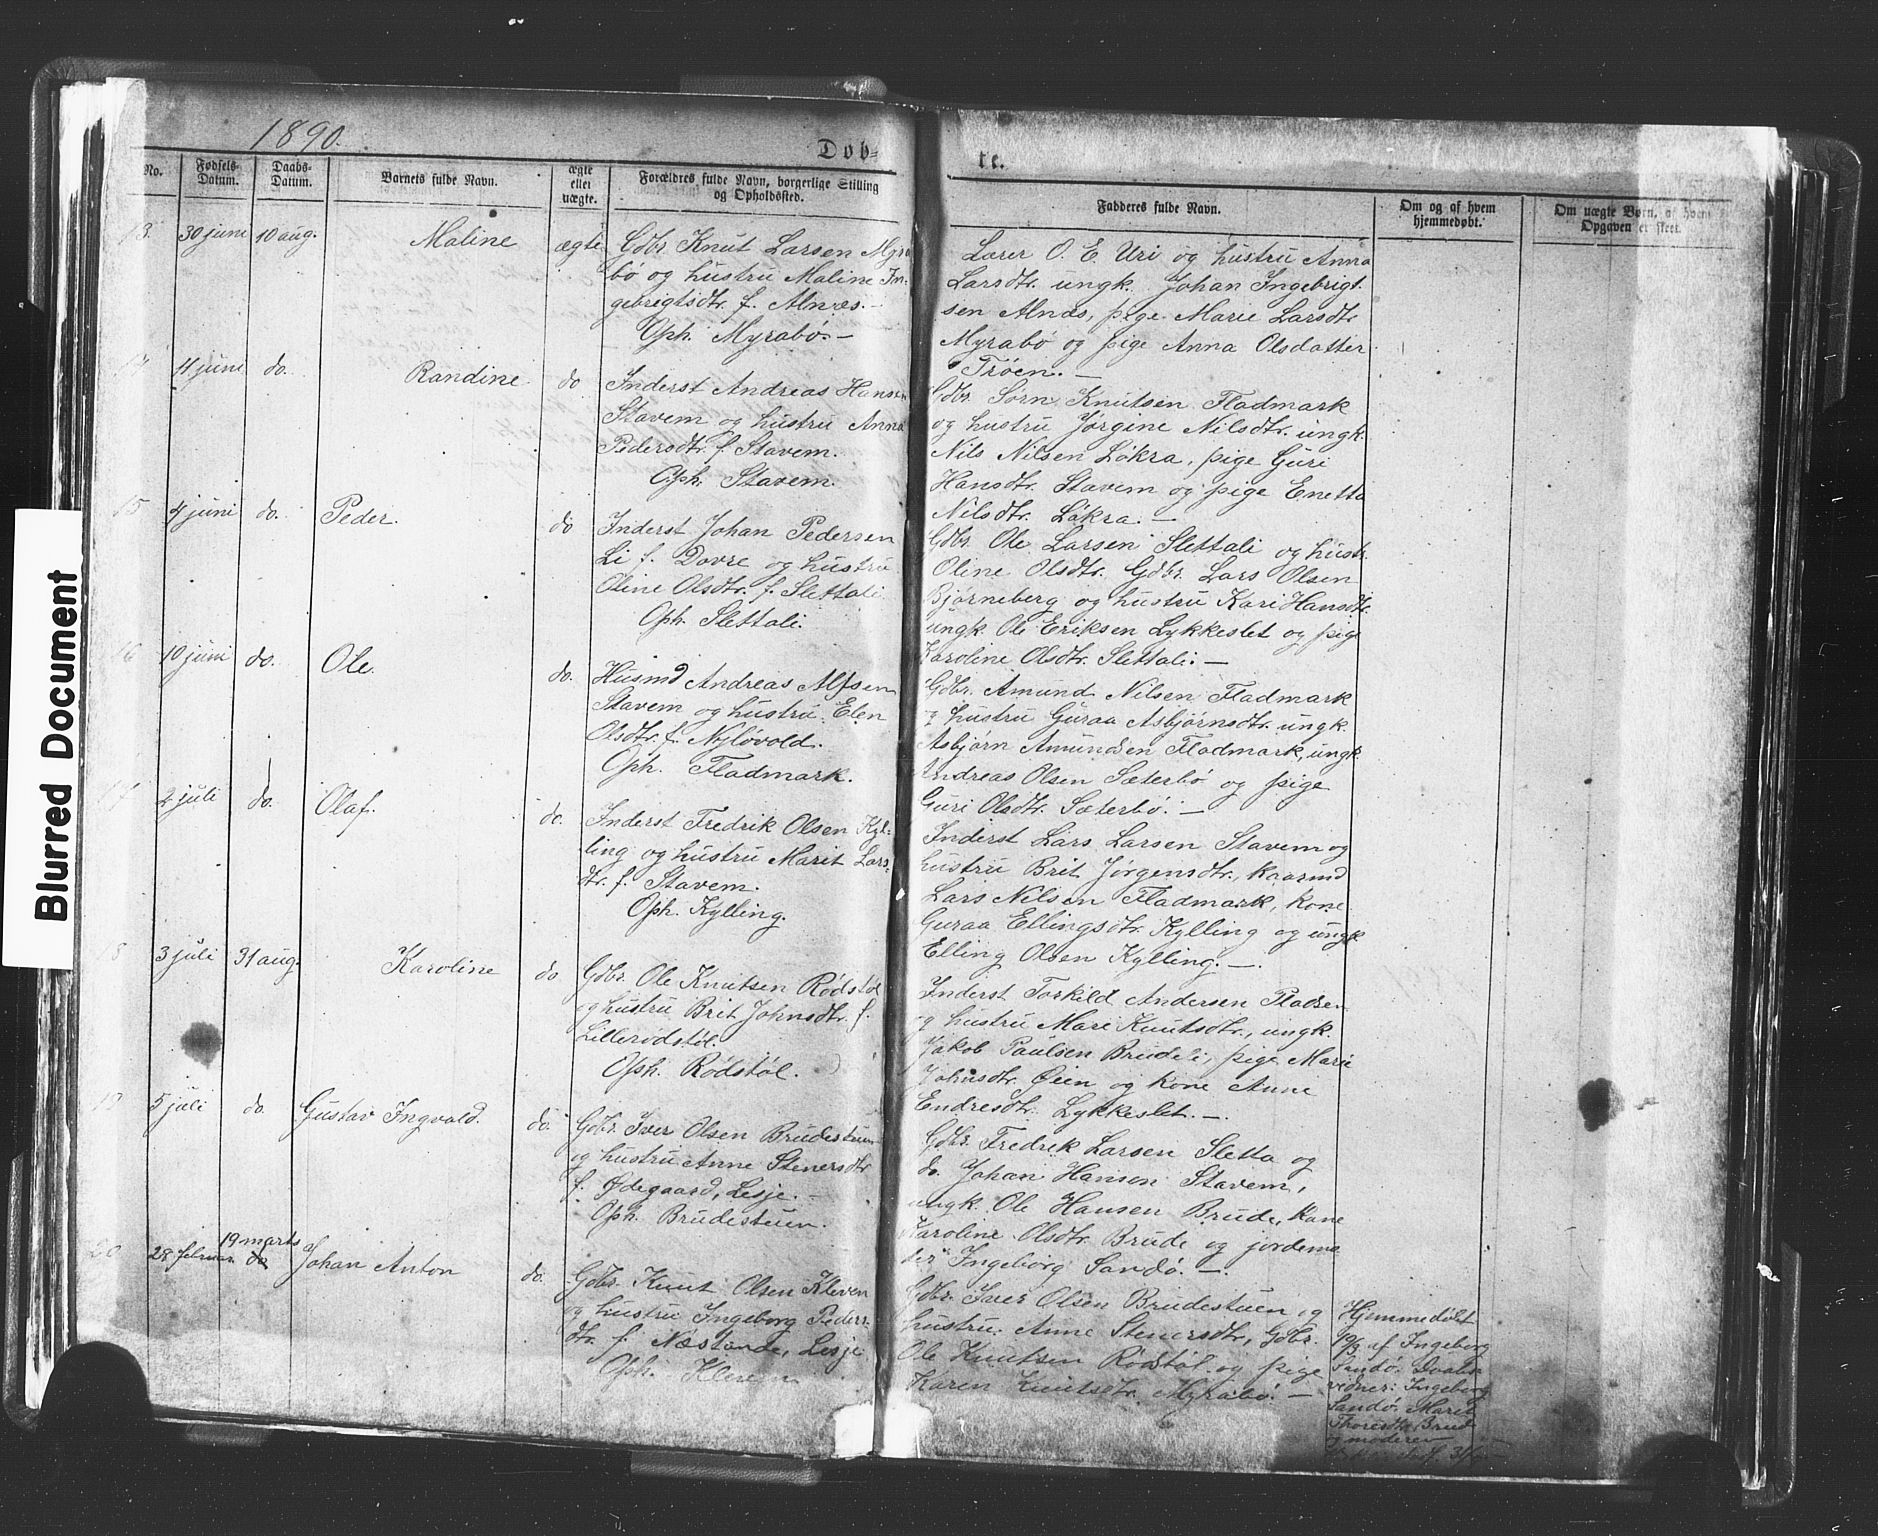 1890.
Døb=
te.
No.
Fødsels-
Datum.
Daabs-
Datum.
Barnets fulde Navn.
ægte
eller
uægte.
Forældres fulde Navn, borgerlige Stilling
og Opholdssted.
Fadderes fulde Navn.
Om og af hvem
hjemmedøbt.
Om uægte Børn, af hvem
Opgaven er skeet.
13. 30 juni 10 aug. Maline ægte
Gdbr. Knut Larsen Myra
bø og hustru Maline In-
gebrigtsdtr. f. Alnæs. -
Oph. Myrabø. -
Lærer O. E. Uri og hustru Anna
Larsdtr. ungk. Johan Ingebrigt
sen Alnæs, pige Marie Larsdtr
Myrabø og pige Anna Olsdatter
Trøen. -
14 11 juni do. Randine do
Inderst Andreas Hansen
Stavem og hustru Anna
Pedersdtr. f. Stavem.
Oph. Stavem.
Gdbr. Sørn Knutsen Fladmark
og hustru Jørgine Nilsdtr. ungk.
Nils Nilsen Løkra, pige Guri
Hansdtr. Stavem og pige Enetta
Nilsdtr. Løkra. -
15 4 juni do. Peder. do
Inderst Johan Pedersen
Li f. Dovre og hustru
Oline Olsdtr. f. Slettali
Oph. Slettali.
Gdbr. Ole Larsen Slettali og hustr.
Oline Olsdtr. Gdbr. Lars Olsen
Bjørneberg og hustru Kari Hansdtr.
ungk. Ole Eriksen Lykkeslet og pige
Karoline Olsdtr. Slettali. -
16 10 juni do. Ole. do.
Husmd Andreas Alfsen
Stavem og hustru Elen
Olsdtr. f. Nyløvold.
Oph. Fladmark.
Gdbr. Amund Nilsen Fladmark
og hustru Guraa Asbjørnsdtr. ungk.
Asbjørn Amundsen Fladmark, ungk.
Andreas Olsen Sæterbø og pige
Guri Olsdtr. Sæterbø. -
17 2 juli do. Olaf. do.
Inderst Fredrik Olsen Kyl-
ling og hustru Marit Lars-
dtr. f. Stavem.
Oph. Kylling.
Inderst Lars Larsen Stavem og
hustru Brit Jørgensdtr., kaarmd
Lars Nilsen Fladmark, kone
Guraa Ellingsdtr. Kylling og ungk
Elling Olsen Kylling. -
18 3 juli 31 aug. Karoline do.
Gdbr. Ole Knutsen Rødstøl
og hustru Brit Johnsdtr. f.
Lillerødstøl.
Oph. Rødstøl.
Inderst Torkild Andersen Pladsen
og hustru Mari Knutsdtr., ungk.
Jakob Paulsen Brudeli, pige Mari
Johnsdtr. Øien og kone Anne
Endresdtr. Lykkeslet. -
19 5 juli do. Gustav Ingvald. do.
Gdbr. Iver Olsen Brudestuen
og hustru Anne Stenersdtr
f. Ødegaard, Lesje. -
Oph. Brudestuen.
Gdbr. Fredrik Larsen Sletta og
do. Johan Hansen Stavem,
ungk. Ole Hansen Brude, Kone
Karoline Olsdtr. Brude og jordemo
der Ingeborg Sandø. -
20 28 februar 19 marts do Johan Anton do.
Gdbr. Knut Olsen Kleven
og hustru Ingeborg Peders-
dtr. f. Næstande, Lesje
Oph. Kleven
Gdbr. Iver Olsen Brudestuen og
hustru Anne Stenersdtr, Gdbr.
Ole Knutsen Rødstøl og pige
Karen Knutsdtr. Myrabø. -
Hjemmedøbt
19/3 af Ingeborg
Sandø. Daabs
vidner: Ingeborg
Sandø. Marit
Thoresdtr. Brude
og moderen
Blurred Document